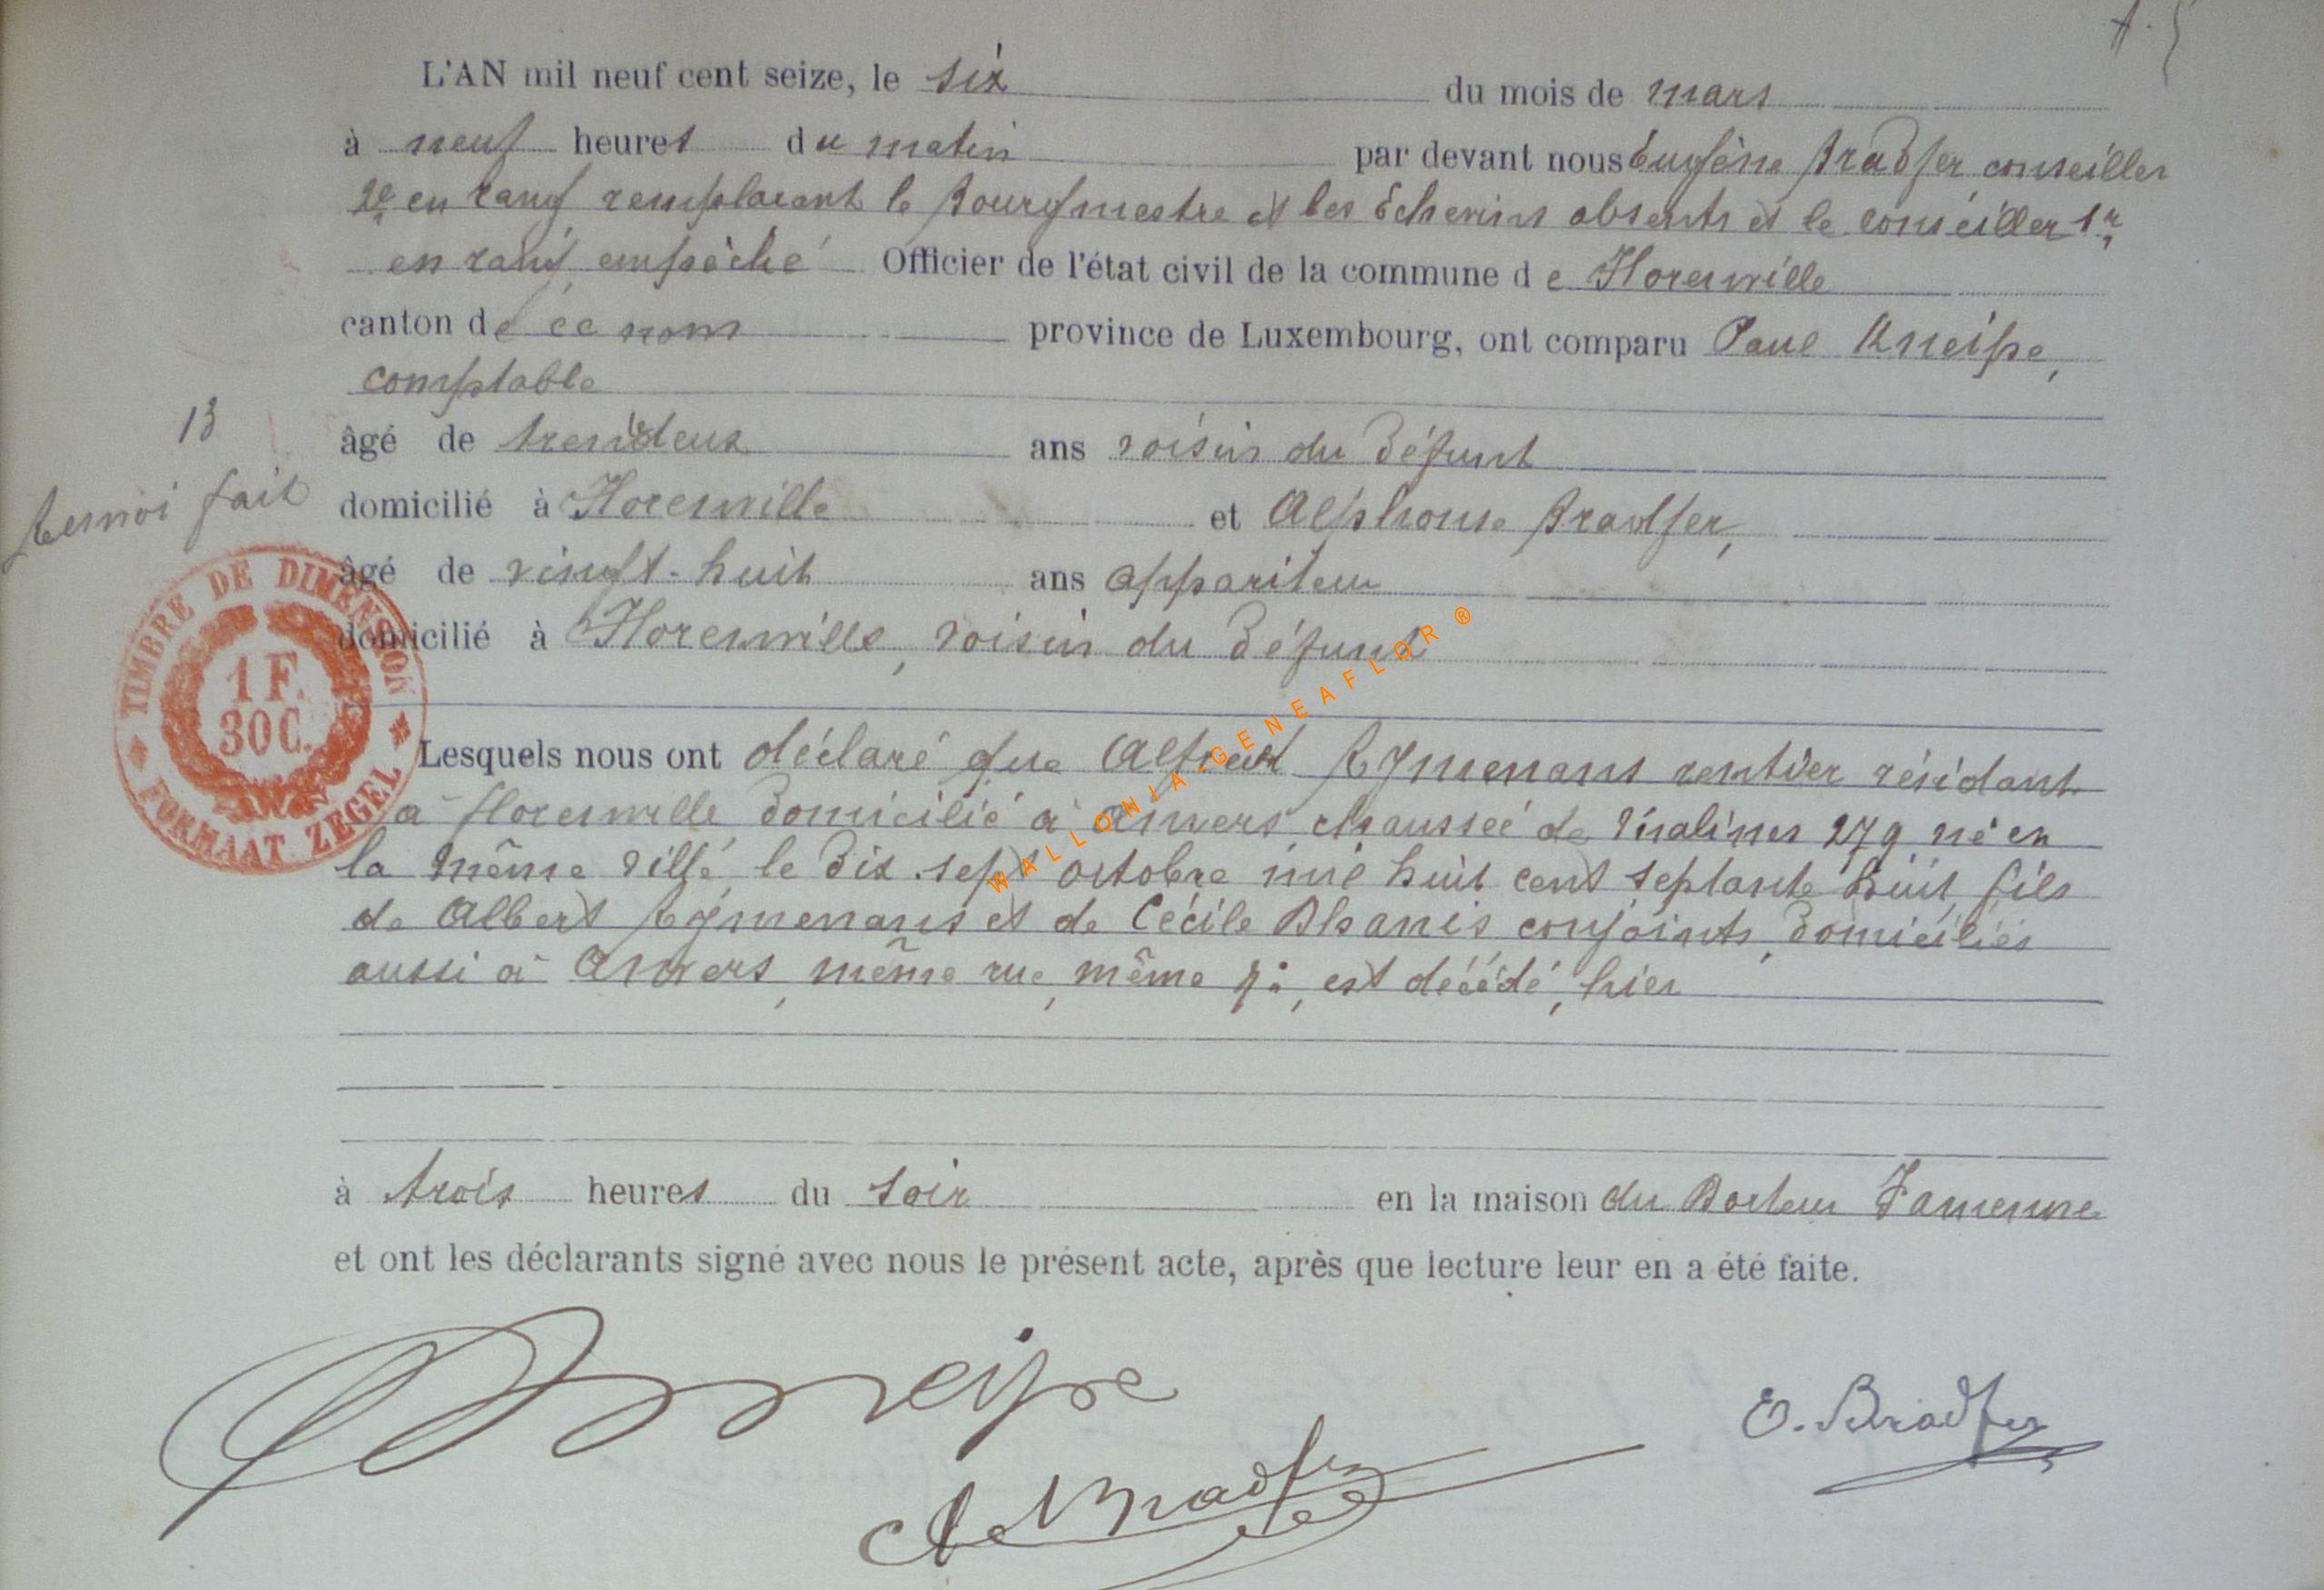 L'AN mil neuf cent seize, le six du mois de mars
à neuf heures du matin par devant nous Eugène Bradfer, conseiller
2e en rang remplaçant le Bourgmestre et les Echevins absents et le conseiller 1r
en rang empêché Officier de l'état civil de la commune de Florenville
canton de ce nom province de Luxembourg, ont comparu Paul Kneipe,
comptable
13
âgé de trente deux ans voisin du défunt
Renvoi fait
domicilié à Florenville et Alphonse Bradfer,
âgé de vingt-huit ans appariteur
domicilié à Florenville, voisin du défunt
TIMBRE DE DIMENSION
1 F.
30 C.
FORMAAT ZEGEL
WALLONIA-GENEAFLOR ®
Lesquels nous ont déclaré que Alfred Rymenans rentier résidant
à Florenville domicilié à Anvers chaussée de Malines 279 né en
la même ville, le dix sept octobre mil huit cent septante huit, fils
de Albert Rymenans et de Cécile conjoints, domiciliés
aussi à Anvers, même rue, même n°, est décédé, hier
à trois heures du soir en la maison du Docteur Famenne
et ont les déclarants signé avec nous le présent acte, après que lecture leur en a été faite.
Kneipe
E. Bradfer
Al Bradfer